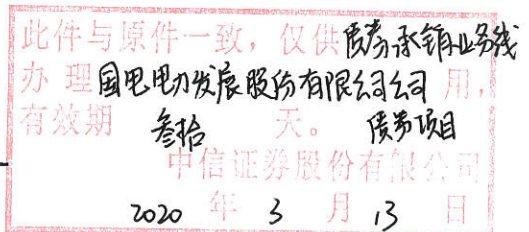 此件与原件一致，仅供债券承销业务线
办理国电电力发展股份有限公司公司用，
有效期叁拾天。债券项目
中信证券股份有限公司
2020年3月13日